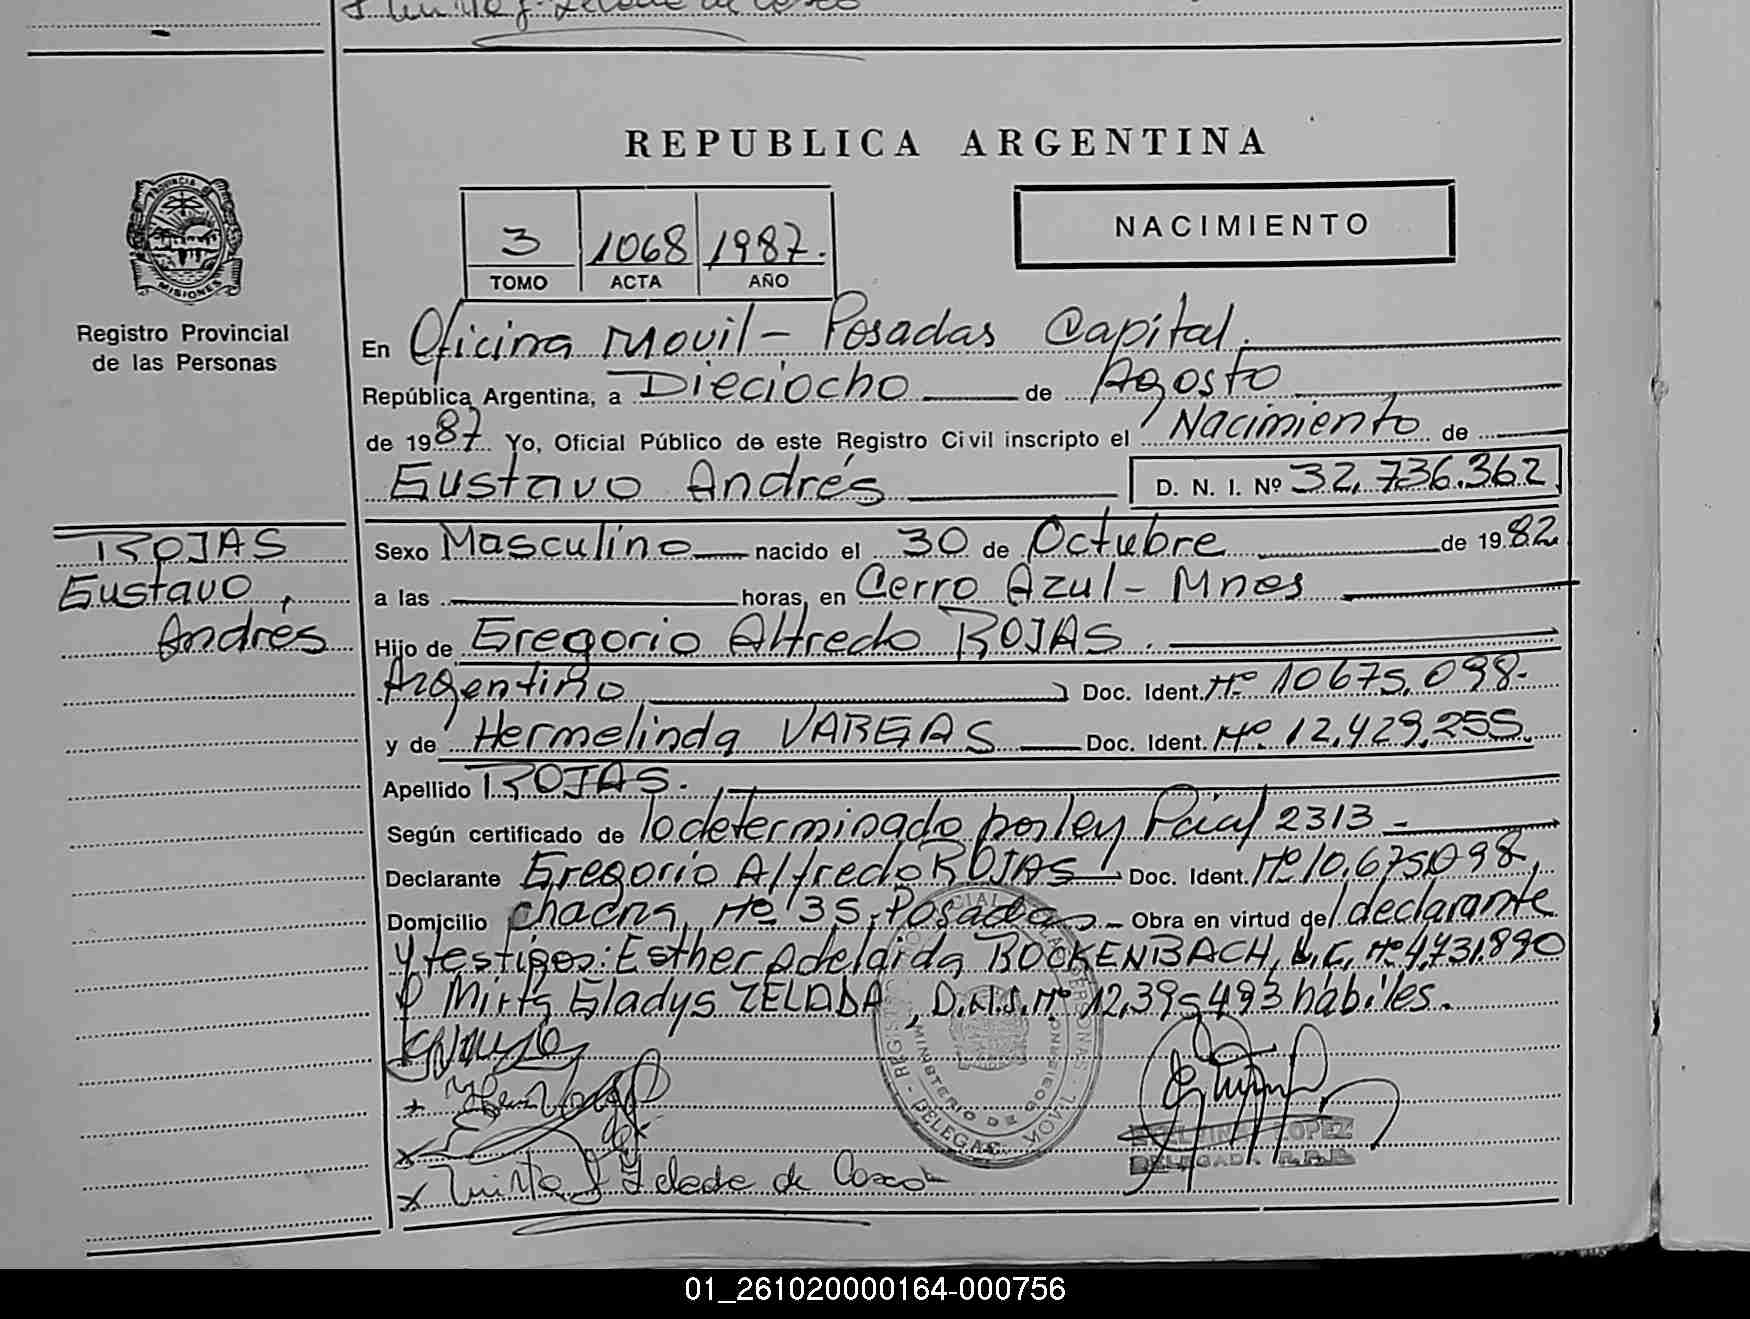 REPUBLICA ARGENTINA
NACIMIENTO
3 1068 1987.
TOMO ACTA AÑO
PROVINCIA DE
MISIONES
Registro Provincial
de las Personas
En Oficina Movil - Posadas Capital.
República Argentina, a Dieciocho de Agosto
de 1987 Yo, Oficial Público de este Registro Civil inscripto el Nacimiento de
Gustavo Andrés D. N. I. Nº 32.736.362
ROJAS
Gustavo,
Andrés
Sexo Masculino nacido el 30 de Octubre de 1982
a las horas, en Cerro Azul - Mnes
Hijo de Gregorio Alfredo ROJAS.
Argentino Doc. Ident. Nº 10675.098-
y de Hermelinda VARGAS Doc. Ident. Nº 12,429,255.
Apellido ROJAS.
Según certificado de lo determinado por ley Pcial 2313 -
Declarante Gregorio Alfredo ROJAS Doc. Ident. Nº 10.675098,
Domicilio chacra Nº 35, Posadas - Obra en virtud del declarante
y testigos: Esther Adelaida BOCKENBACH, L.C. Nº 4,731.890
y Mirta Gladys ZELADA, D.N.I. Nº 12,395493 hábiles.
Mirta G Zelada de
REGISTRO PROVINCIAL DE LAS PERSONAS - DELEGAC. MOVIL -
MINISTERIO DE GOBIERNO
LOPEZ
DELEGADA R.P.P.
01_261020000164-000756